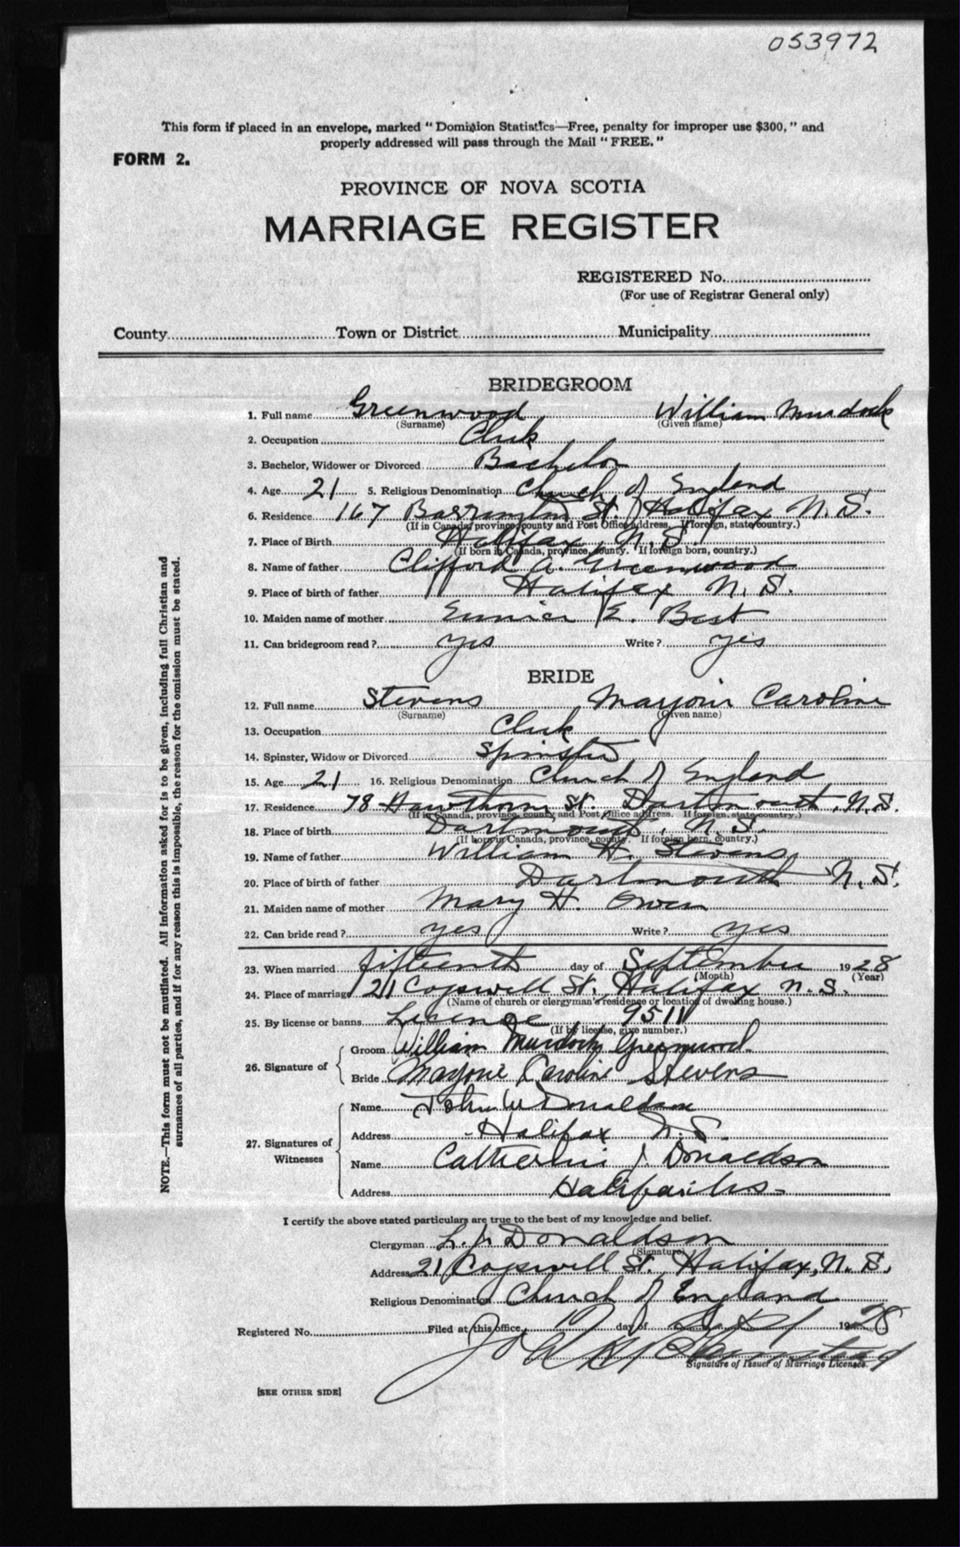 053972
This form if placed in an envelope, marked "Dominion Statistics—Free, penalty for improper use $300," and
properly addressed will pass through the Mail "FREE."
FORM 2.
PROVINCE OF NOVA SCOTIA
MARRIAGE REGISTER
REGISTERED No.
(For use of Registrar General only)
County Town or District Municipality
BRIDEGROOM
1. Full name Greenwood William Murdock
(Surname) (Given name)
2. Occupation Clerk
3. Bachelor, Widower or Divorced Bachelor
4. Age 21 5. Religious Denomination Church of England
6. Residence 167 Barrington St. Halifax N.S.
(If in Canada, province, county and Post Office address. If foreign, state country.)
7. Place of Birth Halifax, N.S.
(If born in Canada, province, county. If foreign born, country.)
8. Name of father Clifford A. Greenwood
9. Place of birth of father Halifax N.S.
10. Maiden name of mother Eunice E. Best
11. Can bridegroom read? yes Write? yes
BRIDE
12. Full name Stevens Marjorie Caroline
(Surname) (Given name)
13. Occupation Clerk
14. Spinster, Widow or Divorced Spinster
15. Age 21 16. Religious Denomination Church of England
17. Residence 78 Hawthorn St. Dartmouth, N.S.
(If in Canada, province, county and Post Office address. If foreign, state country.)
18. Place of birth Dartmouth, N.S.
(If born in Canada, province, county. If foreign born, country.)
19. Name of father William H. Stevens
20. Place of birth of father Dartmouth N.S.
21. Maiden name of mother Mary H. Owen
22. Can bride read? yes Write? yes
23. When married fifteenth day of September 1928
(Month) (Year)
24. Place of marriage 21 Cogswell St. Halifax N.S.
(Name of church or clergyman's residence or location of dwelling house.)
25. By license or banns License 9511
(If by license, give number.)
26. Signature of
Groom William Murdock Greenwood
Bride Marjorie Caroline Stevens
27. Signatures of Witnesses
Name John W Donaldson
Address Halifax N.S.
Name Catherine J. Donaldson
Address Halifax
I certify the above stated particulars are true to the best of my knowledge and belief.
Clergyman L. J. Donaldson
(Signature)
Address 21 Cogswell St. Halifax, N.S.
Religious Denomination Church of England
Registered No. Filed at this office day of Sept 1928
Signature of Issuer of Marriage Licenses.
[SEE OTHER SIDE]
NOTE.—This form must not be mutilated. All information asked for is to be given, including full Christian and
surnames of all parties, and if for any reason this is impossible, the reason for the omission must be stated.